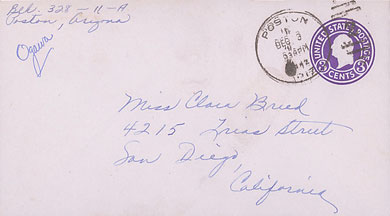 Blk. 328-11-A
Poston, Arizona
Ogawa
POSTON
DEC 3
1942
ARIZ.
UNITED STATES POSTAGE
3 CENTS 3
Miss Clara Breed
4215 Trias Street
San Diego,
California